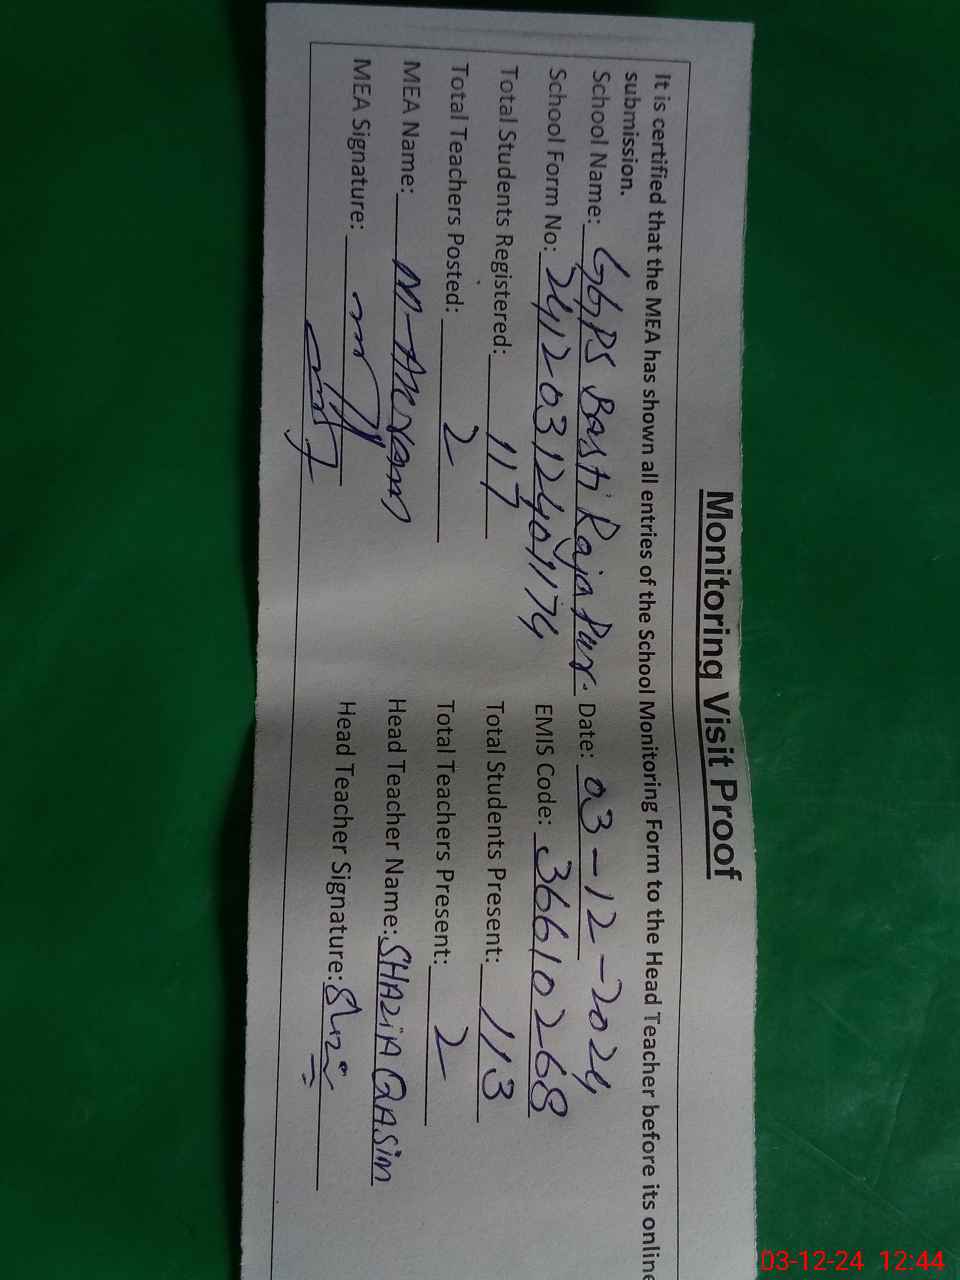 Monitoring Visit Proof
It is certified that the MEA has shown all entries of the School Monitoring Form to the Head Teacher before its online
submission.
School Name: GGPS Basti Raja Pur. Date: 03-12-2024
School Form No: 24120312401174 EMIS Code: 36610268
Total Students Registered: 117 Total Students Present: 113
Total Teachers Posted: 2 Total Teachers Present: 2
MEA Name: M-Akram Head Teacher Name: SHAZiA QASim
MEA Signature: Head Teacher Signature:
03-12-24 12:44